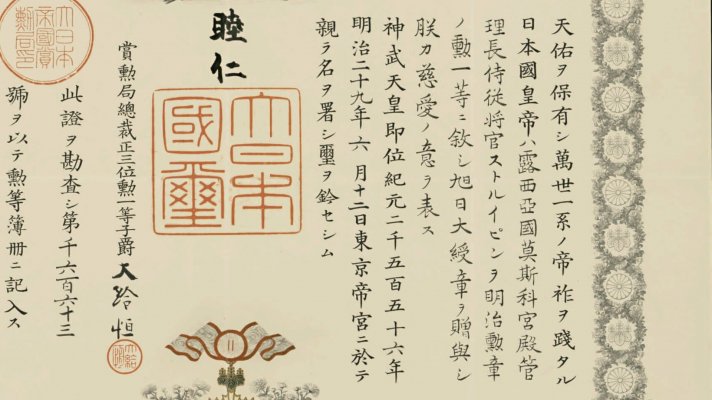 天佑ヲ保有シ萬世一系ノ帝祚ヲ踐タル
日本國皇帝ハ露西亞國莫斯科宮殿管
理長侍従将官ストルイピンヲ明治勲章
ノ勲一等ニ敘シ旭日大綬章ヲ贈與シ
朕カ慈愛ノ意ヲ表ス
神武天皇即位紀元二千五百五十六年
明治二十九年六月十二日東京帝宮ニ於テ
親ラ名ヲ署シ璽ヲ鈐セシム
睦仁
大日本國璽
賞勲局總裁正三位勲一等子爵大給恒
此證ヲ勘査シ第千六百六十三
號ヲ以テ勲等簿冊ニ記入ス
大日本帝國賞勲局印